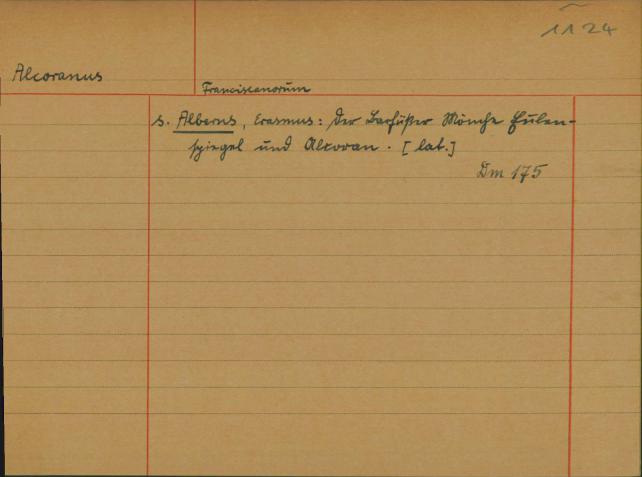 1124
Alcoranus
Franciscanorum
s. Alberus, Erasmus: Der Barfüßer Mönche Eulen-
spiegel und Alcoran. [lat.]
Dm 175